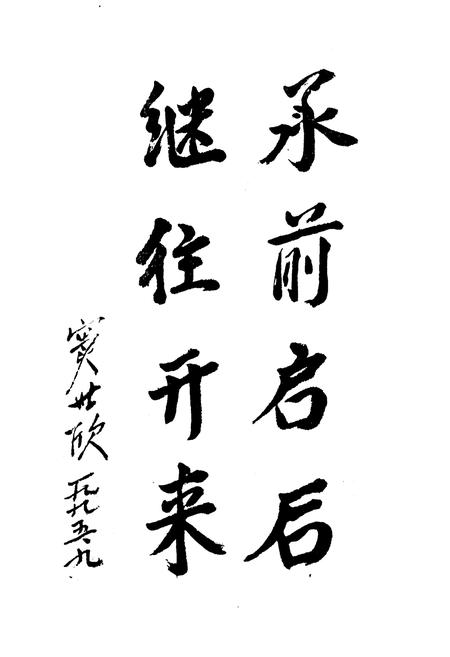 承前启后
继往开来
窦世欣
一九九五·九